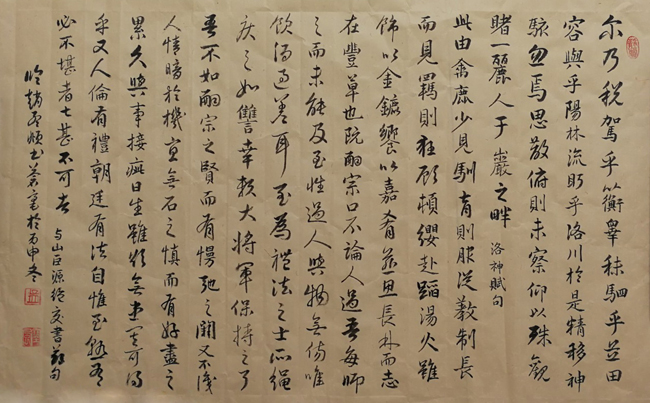 尔乃税驾乎蘅皋秣驷乎芝田
容與乎陽林流眄乎洛川於是精移神
駭忽焉思散俯則未察仰以殊觀
睹一麗人于巖之畔 洛神賦句
此由禽鹿少見馴育則服從教制長
而見羈則狂顧頓纓赴蹈湯火雖
飾以金鑣饗以嘉肴愈思長林而志
在豐草也阮嗣宗口不論人過吾每師
之而未能及至性過人與物無傷唯
飲酒過差耳至為禮法之士所繩
疾之如讐幸賴大將軍保持之耳
吾不如嗣宗之賢而有慢弛之闕又不識
人情暗於機宜無萬石之慎而有好盡之
累久與事接疵日生雖欲無患其可得
乎又人倫有禮朝廷有法自惟至熟有
必不堪者七甚不可者 与山巨源绝交書句
臨趙孟頫書 於丙申冬